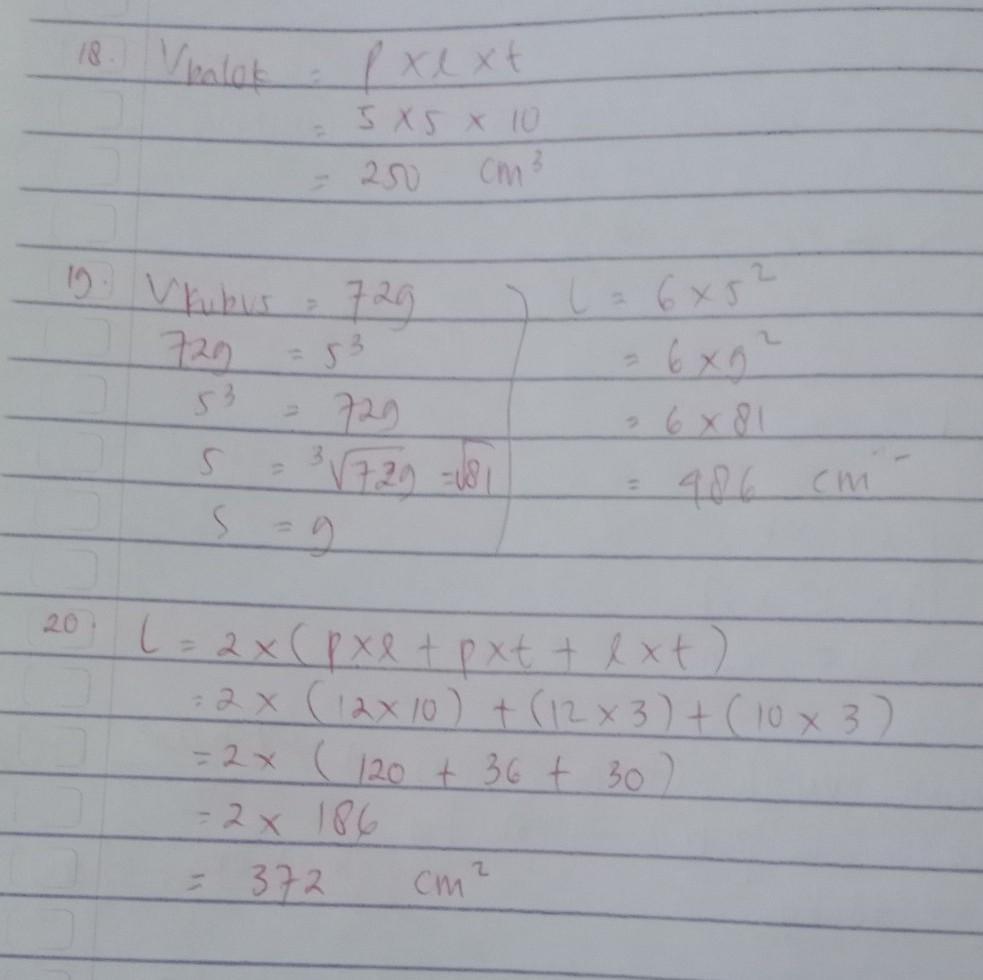 18. Vbalok = p x l x t
= 5 x 5 x 10
= 250 cm³
19. Vkubus = 729
729 = s³
s³ = 729
s = ³√729 = √81
s = 9
L = 6 x s²
= 6 x 9²
= 6 x 81
= 486 cm
20. L = 2 x (p x l + p x t + l x t)
= 2 x (12 x 10) + (12 x 3) + (10 x 3)
= 2 x (120 + 36 + 30)
= 2 x 186
= 372 cm²